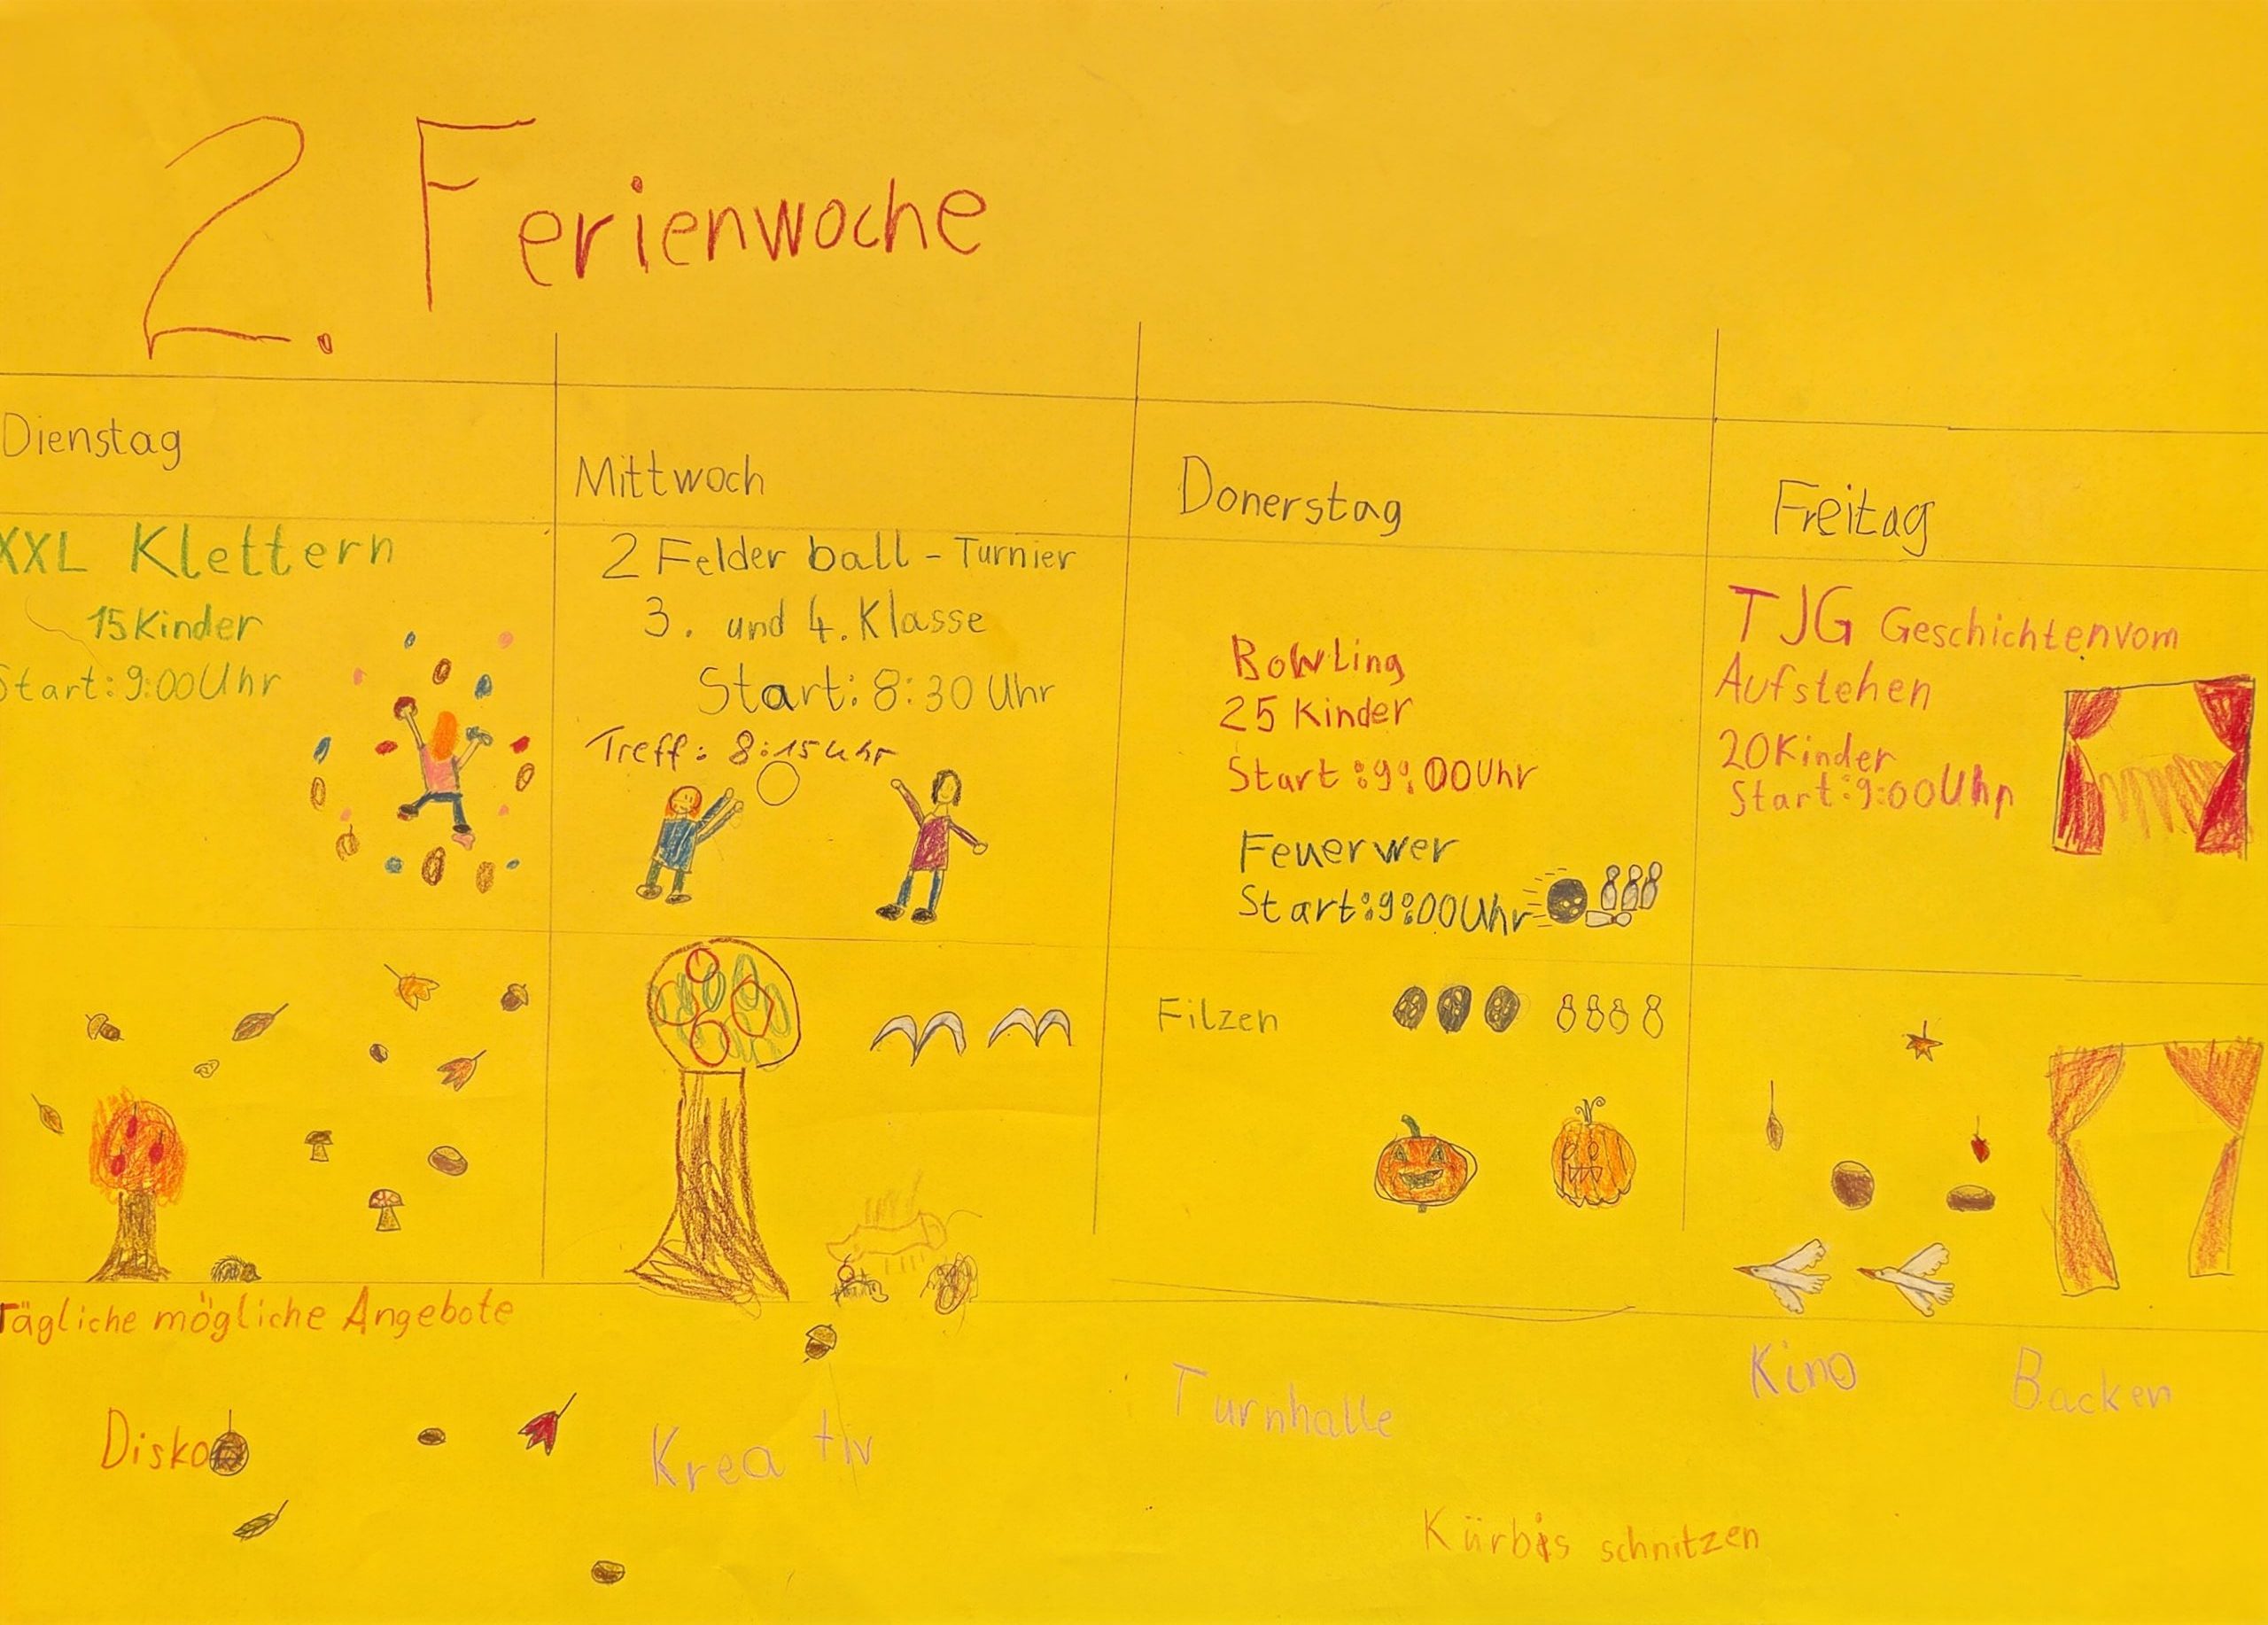 2. Ferienwoche
Dienstag
XXL Klettern
15 Kinder
Start: 9:00 Uhr
Mittwoch
2 Felder ball - Turnier
3. und 4. Klasse
Start: 8:30 Uhr
Treff: 8:15 Uhr
Donerstag
Bowling
25 Kinder
Start: 9:00 Uhr
Feuerwer
Start: 9:00 Uhr
Filzen
Freitag
TJG Geschichten vom
Aufstehen
20 Kinder
Start: 9:00 Uhr
Tägliche mögliche Angebote
Disko
Kreativ
Turnhalle
Kino
Backen
Kürbis schnitzen